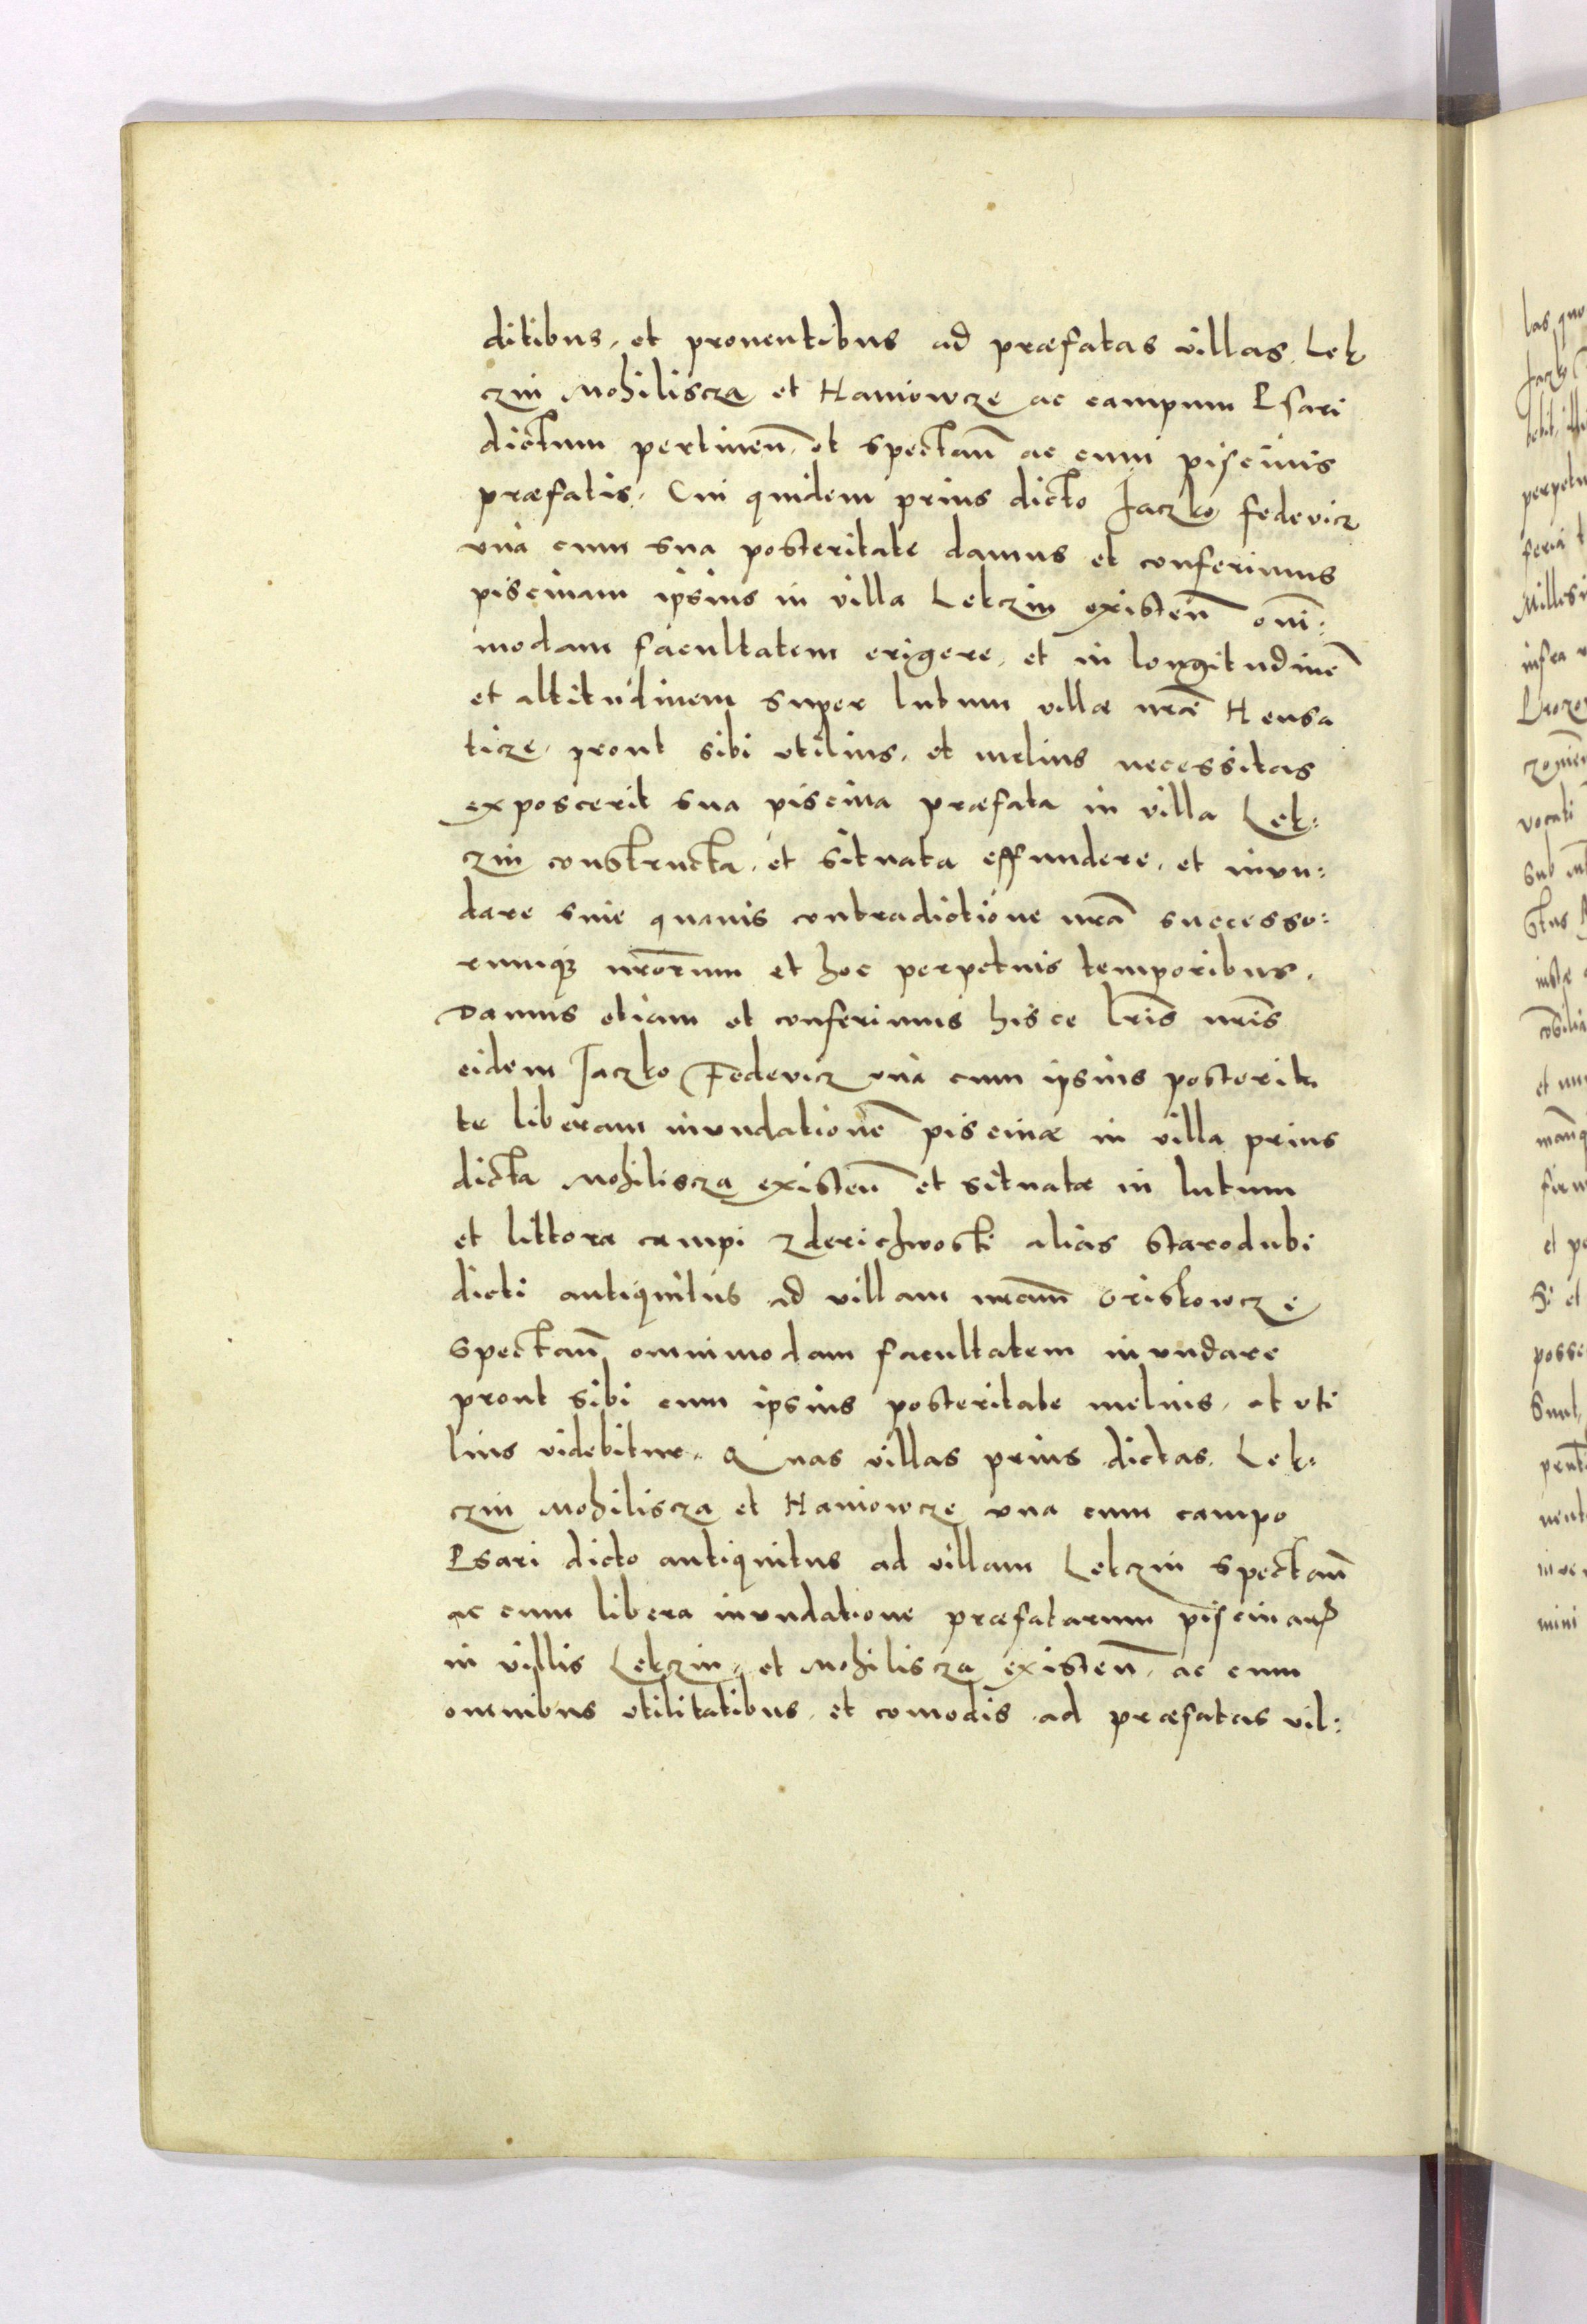 ditibus, et proventibus ad præfatas villas, Lek
czin Mohiliscza et Haniowcze ac campum Psari
dictum pertineñ, et spectañ ac cum piscinis
præfatis. Cui quidem prius dicto Jaczko Fedevicz
vnà cum sua posteritate damus et conferimus
piscinam ipsius in villa Lekczin existeñ oñi:
modam facultatem erigere, et in longitudinẽ
et altitudinem super lutum villæ nrãe Hensa
ticze, prout sibi vtilius, et melius necessitas
exposcerit sua piscina præfata in villa Lek:
czin constructa, et situata effundere, et invn:
dare sine quavis contradictione nrã successo:
rumq; nrõrum et hoc perpetuis temporibus.
Damus etiam et conferimus hisce lrĩs nrĩs
eidem Jaczko Fedevicz vnà cum ipsius posterita
te liberam invndationẽ piscinæ in villa prius
dicta Mohiliscza existeñ et situatæ in lutum
et littora campi Zderichwosti alias Starodubi
dicti antiquitùs ad villam nrãm Griskowcze
spectañ omnimodam facultatem invndare
prout sibi cum ipsius posteritate melius, et vti
lius videbitur. Quas villas prius dictas, Lek:
czin Mohiliscza et Haniowcze vna cum campo
Psari dicto antiquitus ad villam Lekczin spectañ
ac cum libera invndatione præfatarum piscinarꝝ
in villis Lekczin, et Mohiliscza existeñ, ac cum
omnibus vtilitatibus, et comodis ad præfatas vil: